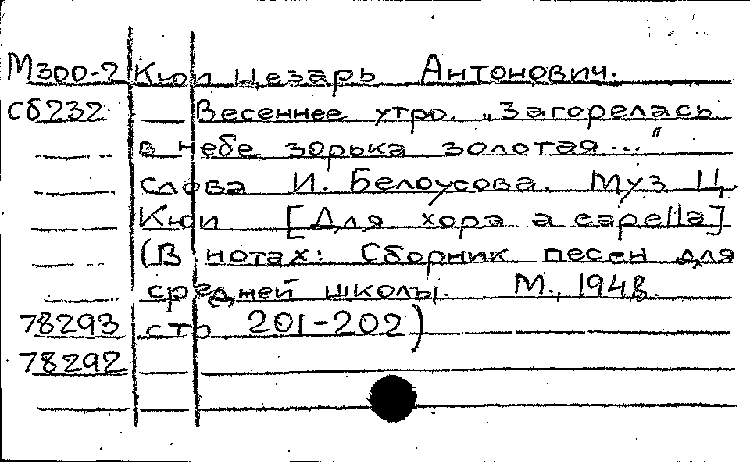 М300-2 Кюи Цезарь Антонович.
Сб232 Весеннее утро. „Загорелась
в небе зорька золотая..."
слова И. Белоусова. Муз Ц.
Кюи [Для хора a capella]
(В нотах: Сборник песен для
средней школы. М., 1948.
78293 стр 201-202)
78292